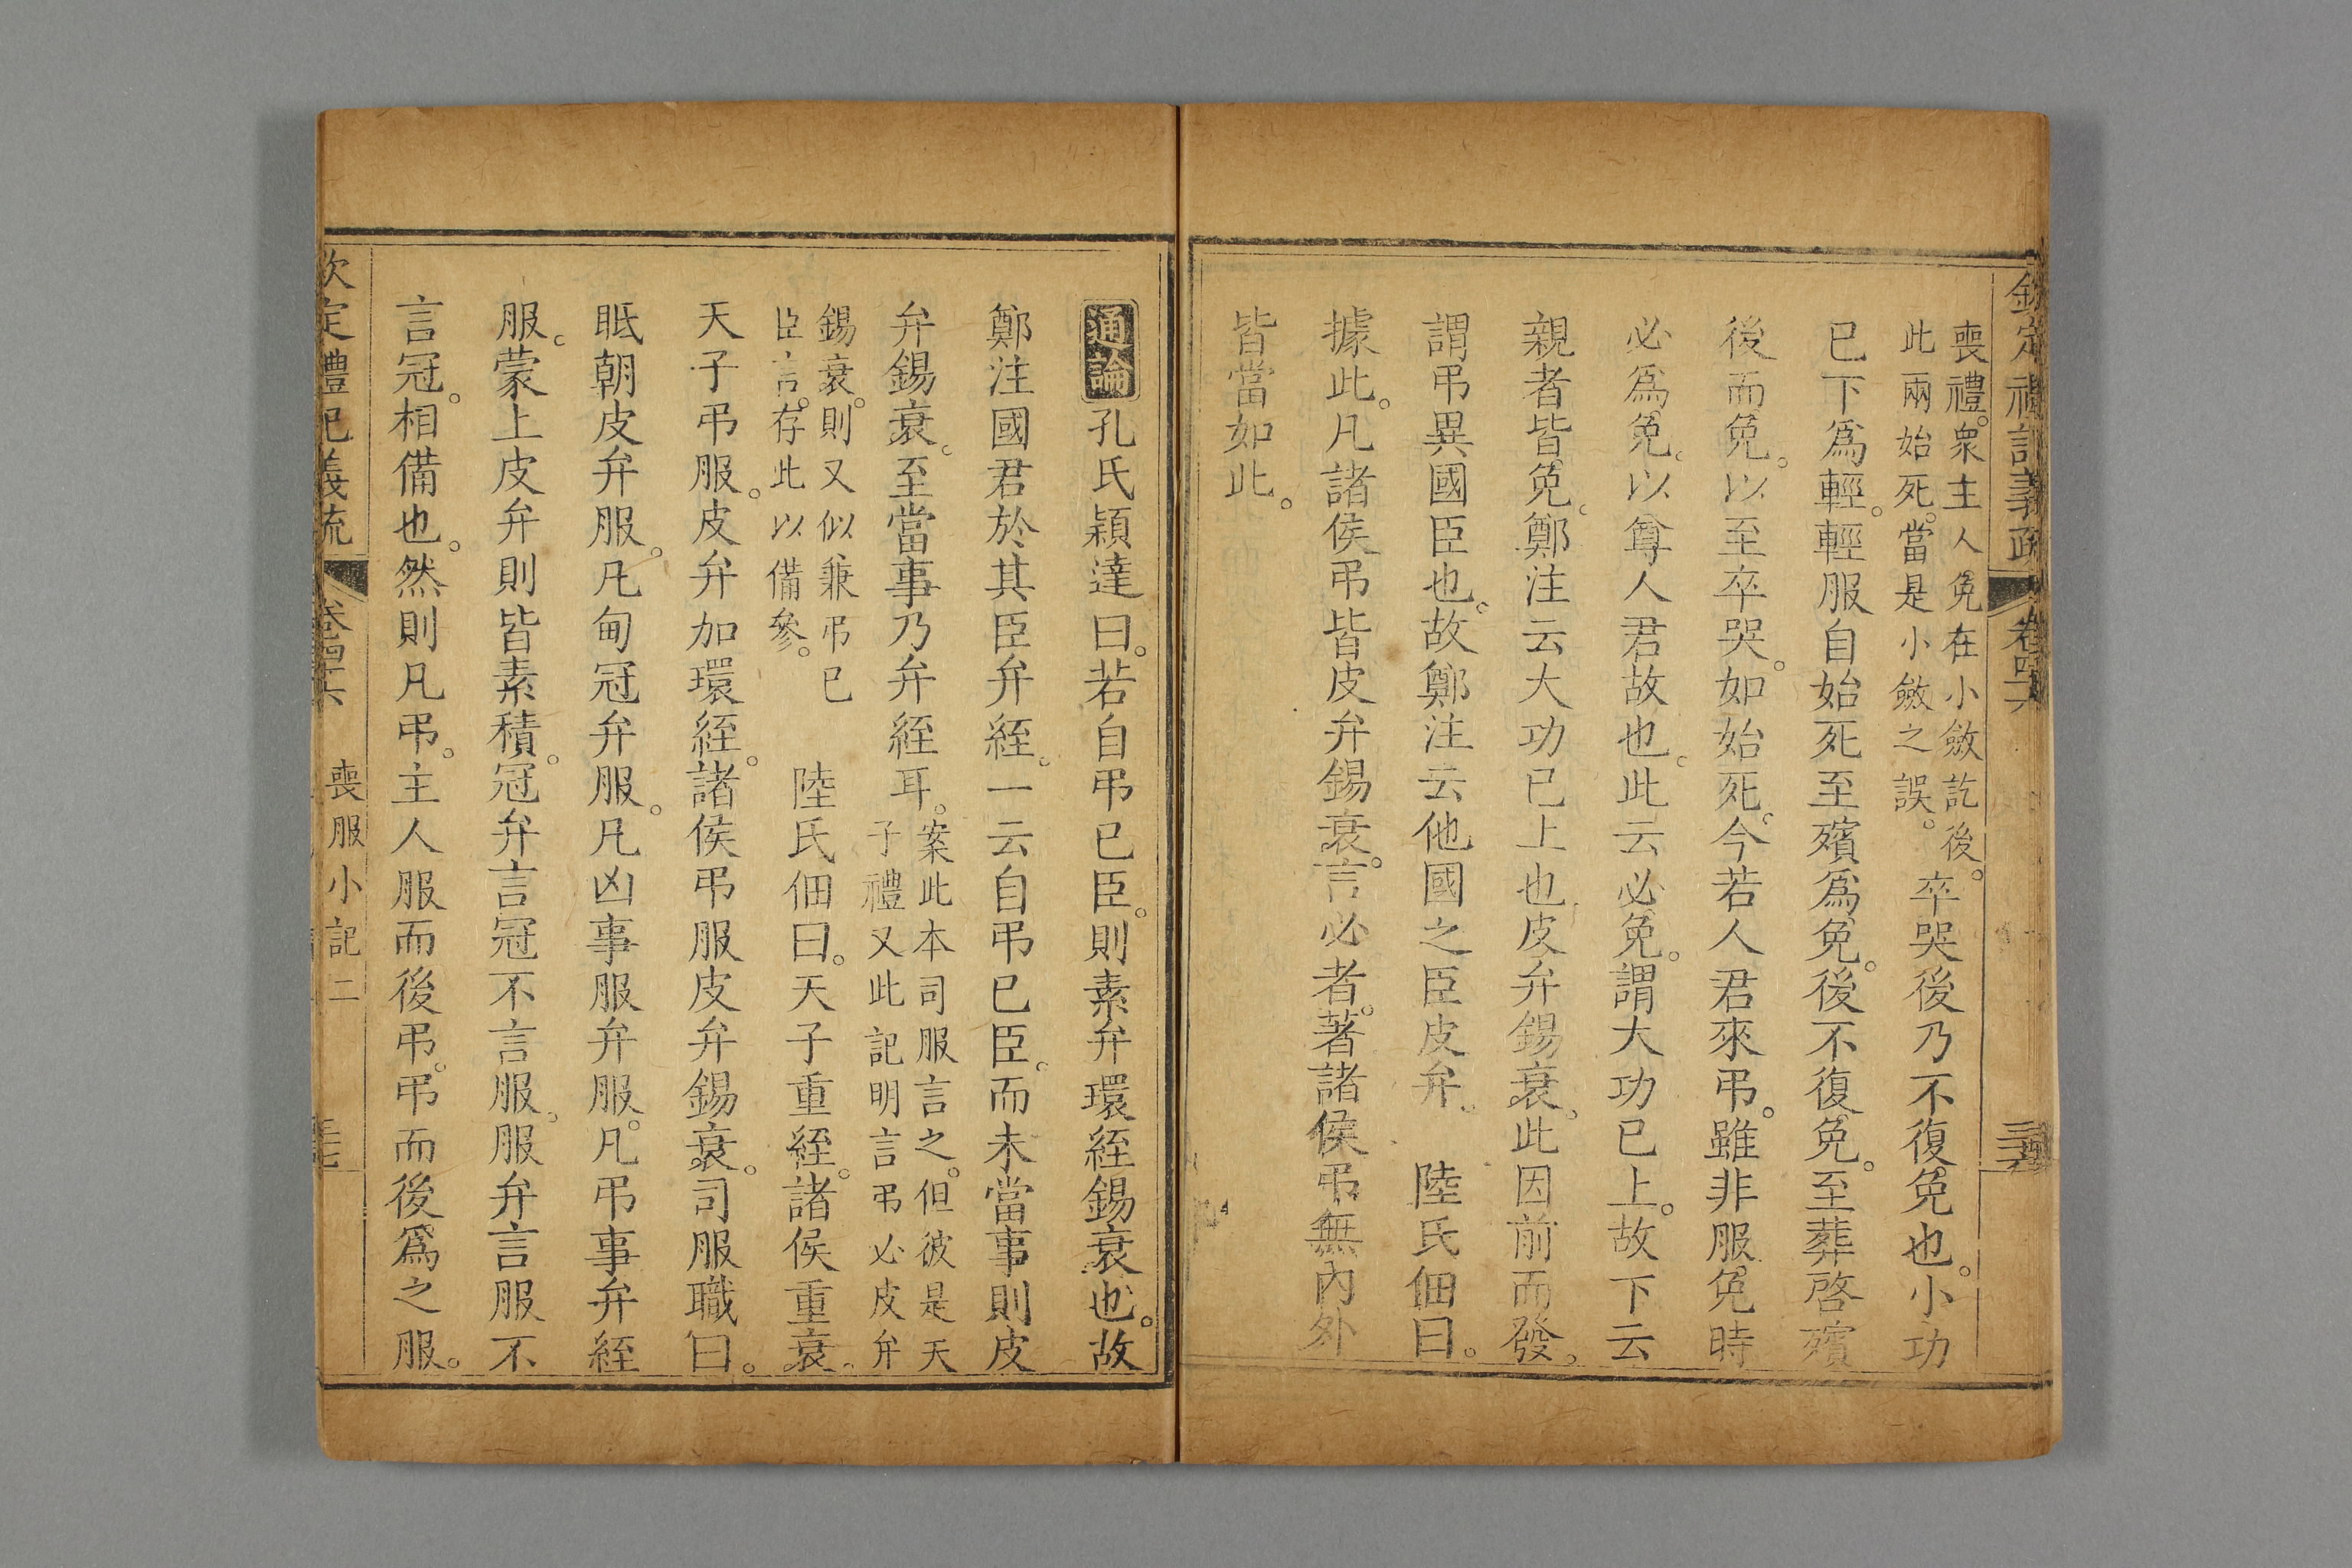 欽定禮記義疏 卷四十六 三十六
喪禮。衆主人免在小斂訖後。
此兩始死。當是小斂之誤。
卒哭後乃不復免也。小功
已下爲輕。輕服自始死至殯爲免。後不復免。至葬啓殯
後而免。以至卒哭。如始死。今若人君來弔。雖非服免時
必爲免。以尊人君故也。此云必免。謂大功已上。故下云
親者皆免。鄭注云大功已上也皮弁錫衰。此因前而發。
謂弔異國臣也。故鄭注云他國之臣皮弁。 陸氏佃曰。
據此。凡諸侯弔皆皮弁錫衰。言必者。著諸侯弔無內外
皆當如此。
通論 孔氏穎達曰。若自弔已臣。則素弁環絰錫衰也。故
鄭注國君於其臣弁絰。一云自弔已臣。而未當事則皮
弁錫衰。至當事乃弁絰耳。
案此本司服言之。但彼是天
子禮又此記明言弔必皮弁
錫衰。則又似兼弔已
臣言。存此以備參。
陸氏佃曰。天子重絰。諸侯重衰。
天子弔服。皮弁加環絰。諸侯弔服皮弁錫衰。司服職曰。
眂朝皮弁服。凡甸冠弁服。凡凶事服弁服。凡弔事弁絰
服。蒙上皮弁則皆素積。冠弁言冠不言服。服弁言服不
言冠。相備也。然則凡弔。主人服而後弔。弔而後爲之服。
欽定禮記義疏 卷四十六 喪服小記二 三十七